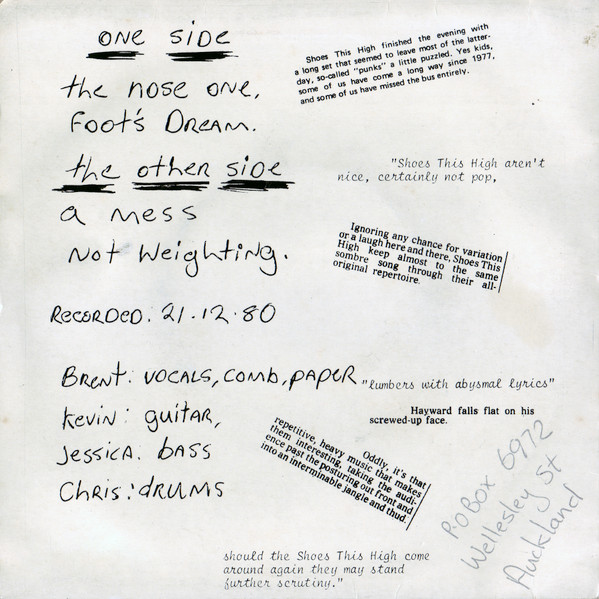 one side
the nose one,
Foot's Dream.
the other side
a mess
Not Weighting.
Recorded. 21.12.80
Brent: vocals, comb, paper
Kevin: guitar,
Jessica: bass
Chris: drums
Shoes This High finished the evening with
a long set that seemed to leave most of the latter-
day, so-called "punks" a little puzzled. Yes kids,
some of us have come a long way since 1977,
and some of us have missed the bus entirely.
"Shoes This High aren't
nice, certainly not pop,
Ignoring any chance for variation
or a laugh here and there, Shoes This
High keep almost to the same
sombre song through their all-
original repertoire.
"lumbers with abysmal lyrics"
Hayward falls flat on his
screwed-up face.
Oddly, it's that
repetitive, heavy music that makes
them interesting, taking the audi-
ence past the posturing out front and
into an interminable jangle and thud.
P.O Box 6972
Wellesley St
Auckland
should the Shoes This High come
around again they may stand
further scrutiny."